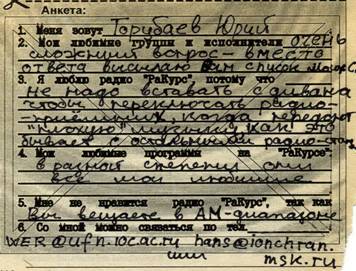 Анкета:
1. Меня зовут Горубаев Юрий
2. Мои любимые группы и исполнители очень
сложный вопрос вместо
ответа высылаю вам список моих
3. Я люблю радио "РаКурс", потому что
не надо вставать с дивана
чтобы переключать радио-
приёмник, когда передают
"плохую" музыку, как это
бывает с остальными радио-
4. Мои любимые программы на "РаКурсе"
в разной степени они
все мои любимые
5. Мне не нравится радио "РаКурс", так как
Вы вещаете в АМ-диапазоне
6. Со мной можно связаться по тел.
WER@ufn.ioc.ac.ru hans@ionchran.
или msk.ru